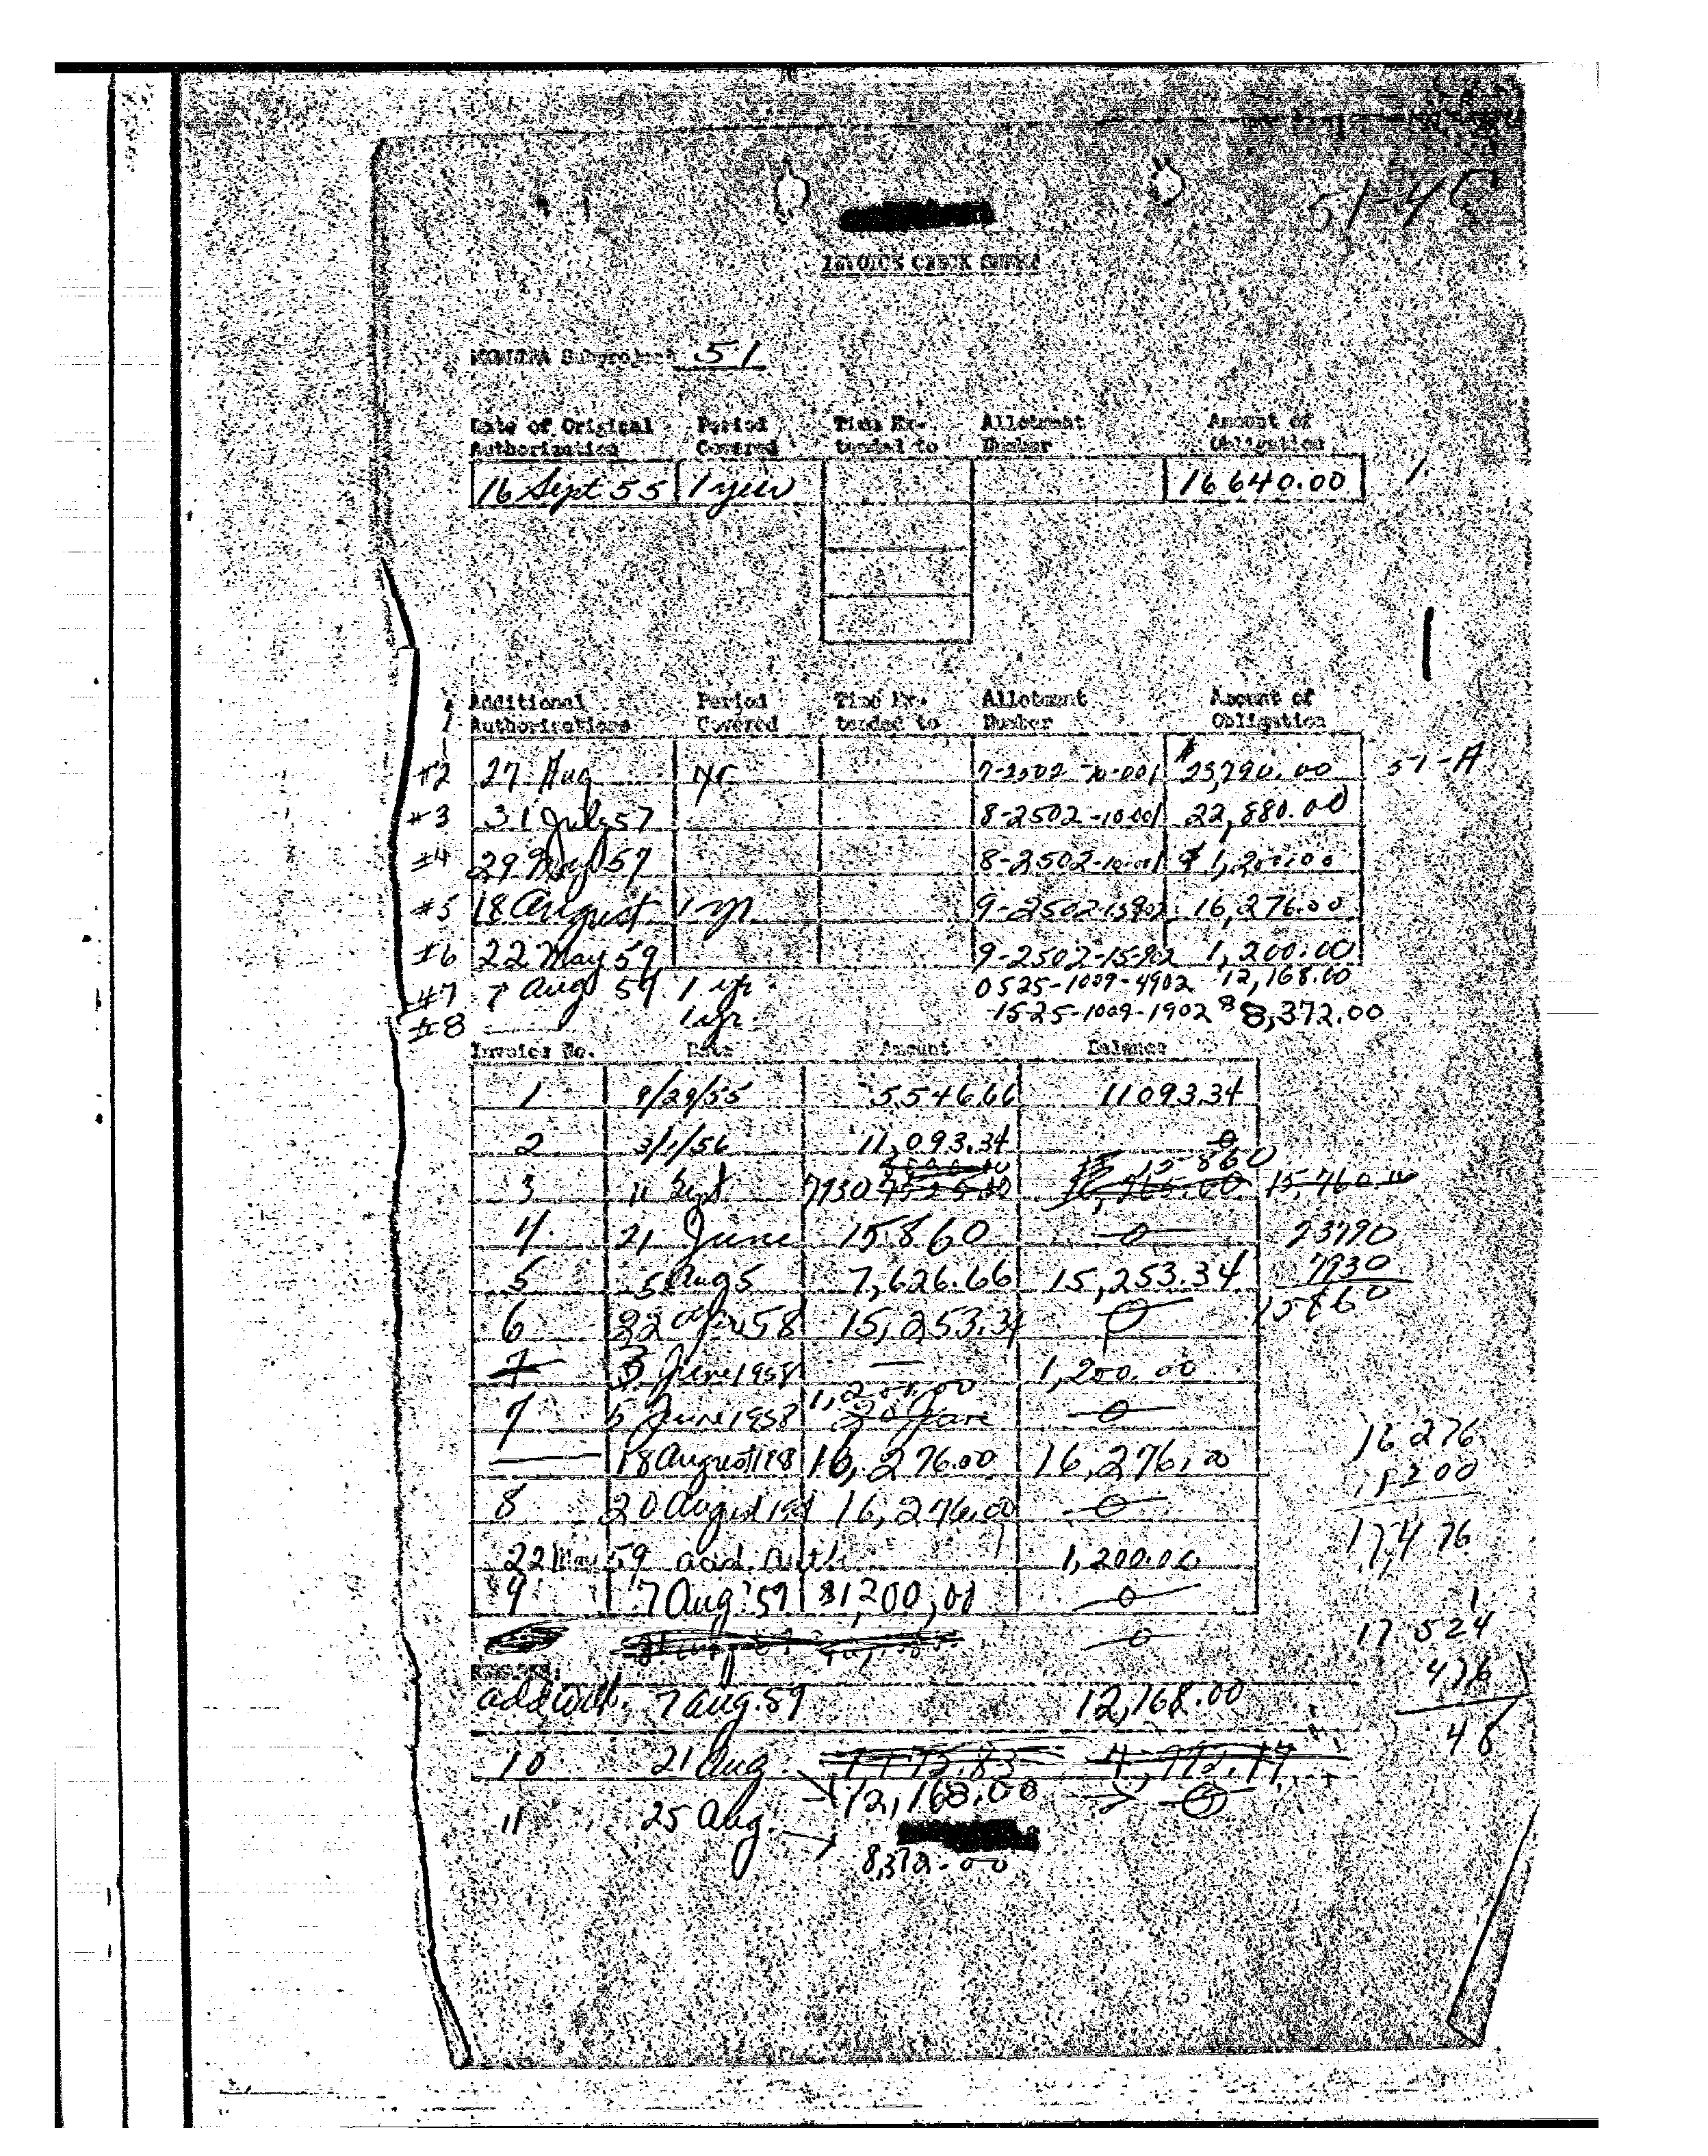 51-45
INVOICE CHECK SHEET
MKULTRA Subproject 51
Date of Original Authorization Period Covered Time Extended to Allotment Number Amount of Obligation
16 Sept 55 1 year 16 640.00
Additional Authorizations Period Covered Time Extended to Allotment Number Amount of Obligation
#2 27 Aug yr 7-2502-10-001 $23,790.00 51-A
#3 31 July 57 8-2502-10-001 22,880.00
#4 29 57 8-2502-10-001 $1,200.00
#5 18 August 1 yr. 9-2502-1590 16,276.00
#6 22 May 59 9-2502-15-902 1,200.00
#7 7 Aug 59 1 yr. 0525-1009-4902 12,168.00
#8 1 yr. 1525-1009-1902 8,372.00
Invoice No. Date Amount Balance
1 9/29/55 5546.66 11093.34
2 3/1/56 11,093.34 0
3 11 Sept 7930 15860 15,760.00
4 21 June 15860 0 23790
5 5 Aug 5 7,626.66 15,253.34 7930
6 22 58 15,253.34 0 15860
7 3 June 1958 — 1,200.00
7 5 June 1958 1,200.00 20 June 0
— 18 August 1958 16,276.00 16,276.00 16 276
8 20 August 16,276.00 0 1200
22 May 59 add. auth. 1,200.00 17,476
9 7 Aug. 59 $1,200.00 0
0 17 524
Remarks:
476
add auth. 7 Aug. 59 12,168.00
48
10 21 Aug. 12,168.00 0
11 25 Aug.
8,372.00